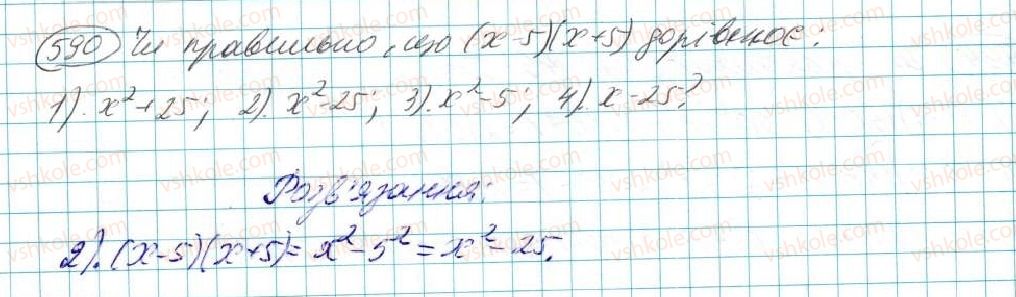 590 Чи правильно, що (x-5)(x+5) дорівнює:
1). x²+25; 2). x²-25; 3). x²-5; 4). x-25?
Розв'язання:
2). (x-5)(x+5)= x²-5²= x²-25.